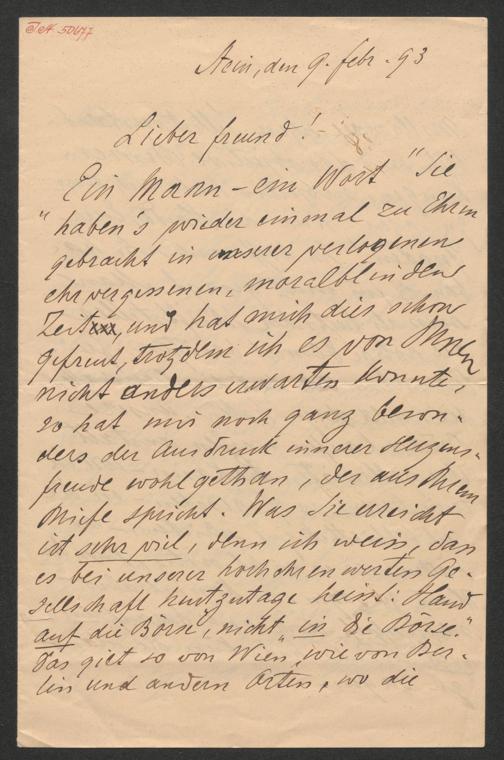 50677
Stein, den 9. Febr. 93
Lieber Freund!
Ein Mann – ein Wort " Sie
" haben's wieder einmal zu Ehren
gebracht in unserer verlogenen
ehrvergessenen, moralblinden
Zeit xxx, und hat mich dies schon
gefreut, trotzdem ich es von Ihnen
nicht anders erwarten konnte,
so hat mir noch ganz beson-
ders der Ausdruck innerer Herzens-
freude wohlgethan, der aus Ihrem
Briefe spricht. Was Sie erreicht
ist sehr viel, denn ich weiss, dass
es bei unserer hochehrenwerten Ge-
sellschaft heutzutage heisst: Hand
auf die Börse, nicht "in die Börse."
Das gilt so von Wien, wie von Ber-
lin und andern Orten, wo die